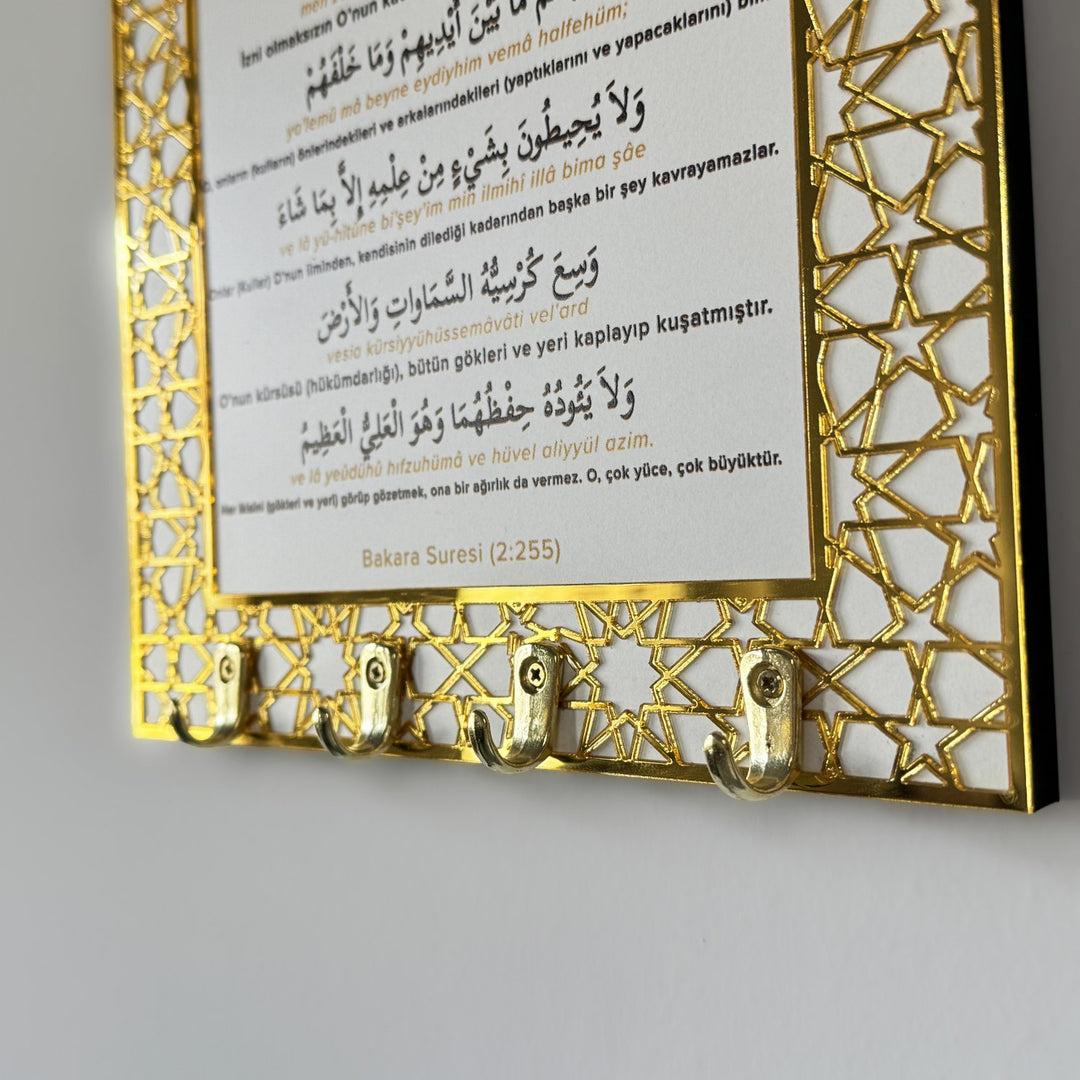 İzni olmaksızın O'nun
مَا بَيْنَ أَيْدِيهِمْ وَمَا خَلْفَهُمْ
ya'lemü mâ beyne eydiyhim vemâ halfehüm;
önlerindekileri ve arkalarındakileri (yaptıklarını ve yapacaklarını)
وَلاَ يُحِيطُونَ بِشَيْءٍ مِنْ عِلْمِهِ إِلاَّ بِمَا شَاءَ
ve lâ yü-hîtûne bi'şey'im min ilmihî illâ bima şâe
Onlar (Kullar) O'nun ilminden, kendisinin dilediği kadarından başka bir şey kavrayamazlar.
وَسِعَ كُرْسِيُّهُ السَّمَاوَاتِ وَالأَرْضَ
vesia kürsiyyühüssemâvâti vel'ard
O'nun kürsüsü (hükümdarlığı), bütün gökleri ve yeri kaplayıp kuşatmıştır.
وَلاَ يَئُودُهُ حِفْظُهُمَا وَهُوَ الْعَلِيُّ الْعَظِيمُ
ve lâ yeûdühû hıfzuhümâ ve hüvel aliyyül azim.
Her ikisini (gökleri ve yeri) görüp gözetmek, ona bir ağırlık da vermez. O, çok yüce, çok büyüktür.
Bakara Suresi (2:255)